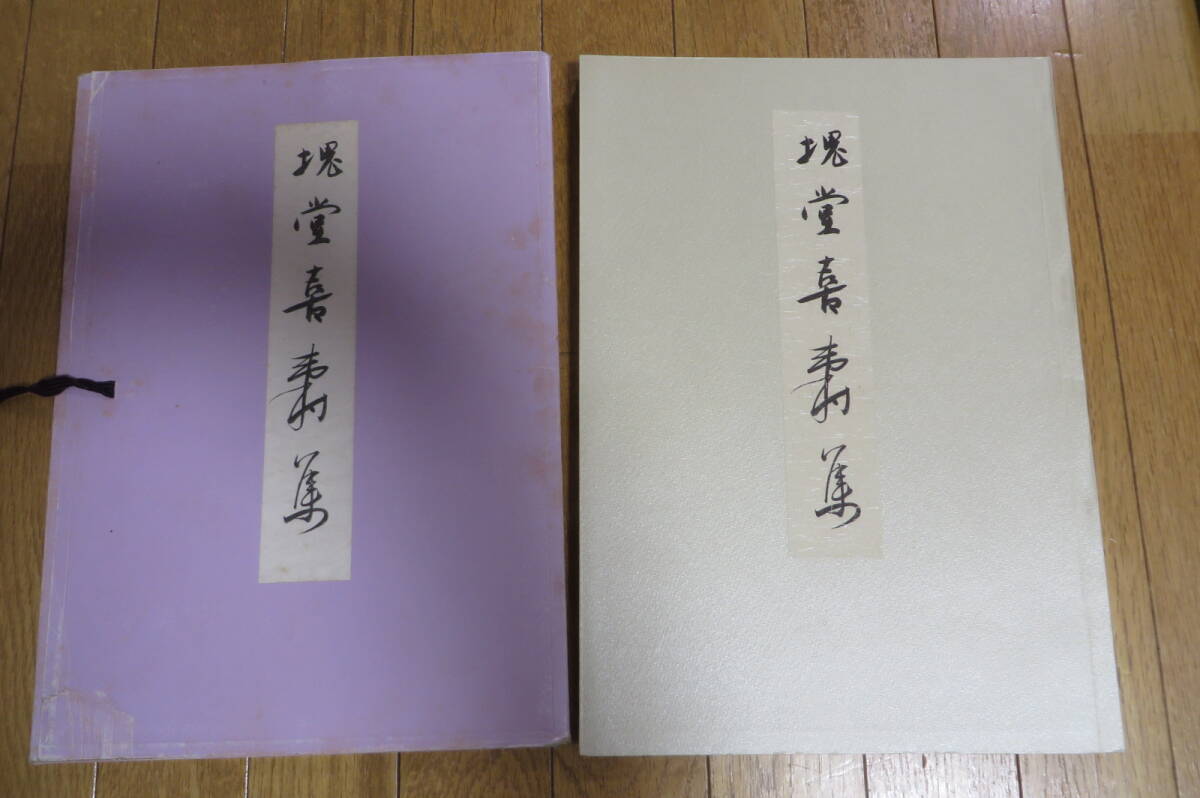 塊堂喜寿集
塊堂喜寿集